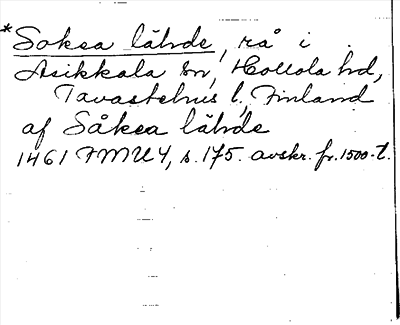 *Soksa lähde, rå i
Asikkala sn, Hollola hd,
Tavastehus l, Finland
af Såksa lähde
1461 FMU 4, s. 175. avskr. fr. 1500-t.